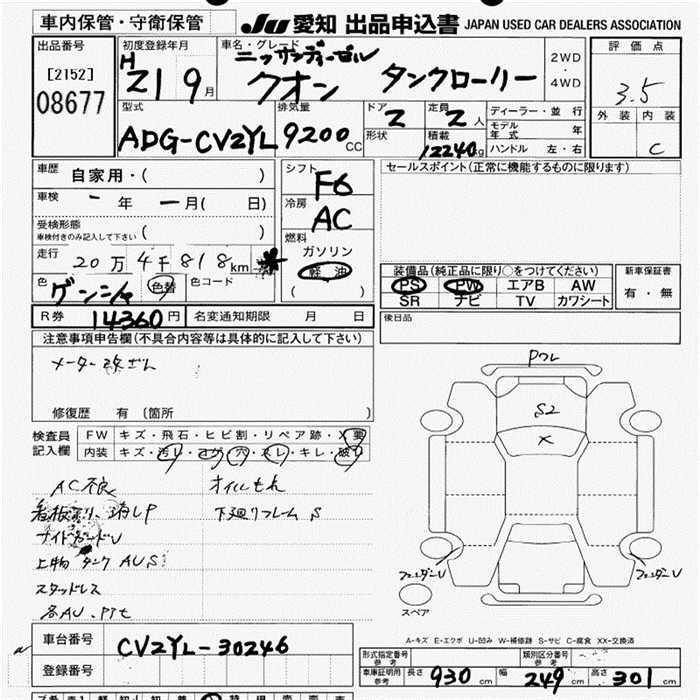 車内保管・守衛保管
JU 愛知 出品申込書 JAPAN USED CAR DEALERS ASSOCIATION
出品番号
[2152]
08677
初度登録年月
H 21 9月
車名・グレード
ニッサンディーゼル
クオン タンクローリー
2WD
・
4WD
評価点
3.5
外装 内装
C
型式
ADG-CV2YL
排気量
9200cc
ドア
2
形状
定員
2人
積載
12240kg
ディーラー・並行
モデル年式 年
ハンドル 左・右
車歴
自家用・( )
車検
ー 年 ー 月( 日)
受検形態
車検付きのみ記入して下さい ( )
走行
20万4千818km *
色
ゲンシャ
色替
色コード
シフト
F6
冷房
AC
燃料
ガソリン
軽油
( )
セールスポイント(正常に機能するものに限ります)
装備品(純正品に限り○をつけてください)
PS PW エアB AW
SR ナビ TV カワシート
新車保証書
有・無
R券 14360円
名変通知期限 月 日
後日品
注意事項申告欄(不具合内容等は具体的に記入して下さい)
メーター改ざん
修復歴 有(箇所 )
検査員
記入欄
FW キズ・飛石・ヒビ割・リペア跡・X 要
内装 キズ・汚レ・コゲ・穴・スレ・キレ・破レ
AC不良 オイルもれ
看板有り、消しP 下廻りフレームS
サイドガードU
上物タンクAUS
スタッドレス
各AU.
Pワレ
S2
X
フェンダーU
フェンダーU
スペア
車台番号
CV2YL-30246
登録番号
A-キズ E-エクボ U-凹み W-補修跡 S-サビ C-腐食 XX-交換済
形式指定番号
参考
類別区分番号
参考
車庫証明用
参考
長さ 930cm 幅 249cm 高さ 301cm